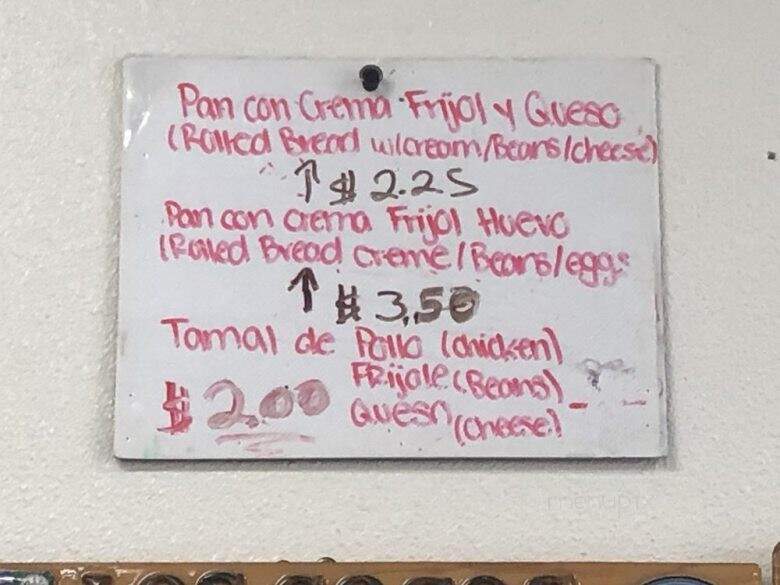 Pan con Crema Frijol y Queso
(Rolled Bread w/cream/Beans/cheese)
↑ $ 2.25
Pan con crema Frijol Huevo
(Rolled Bread creme/Beans/eggs
↑ $ 3.50
Tamal de Pollo (chicken)
FRijole (Beans)
$ 2.00 Queso (cheese)
menupix